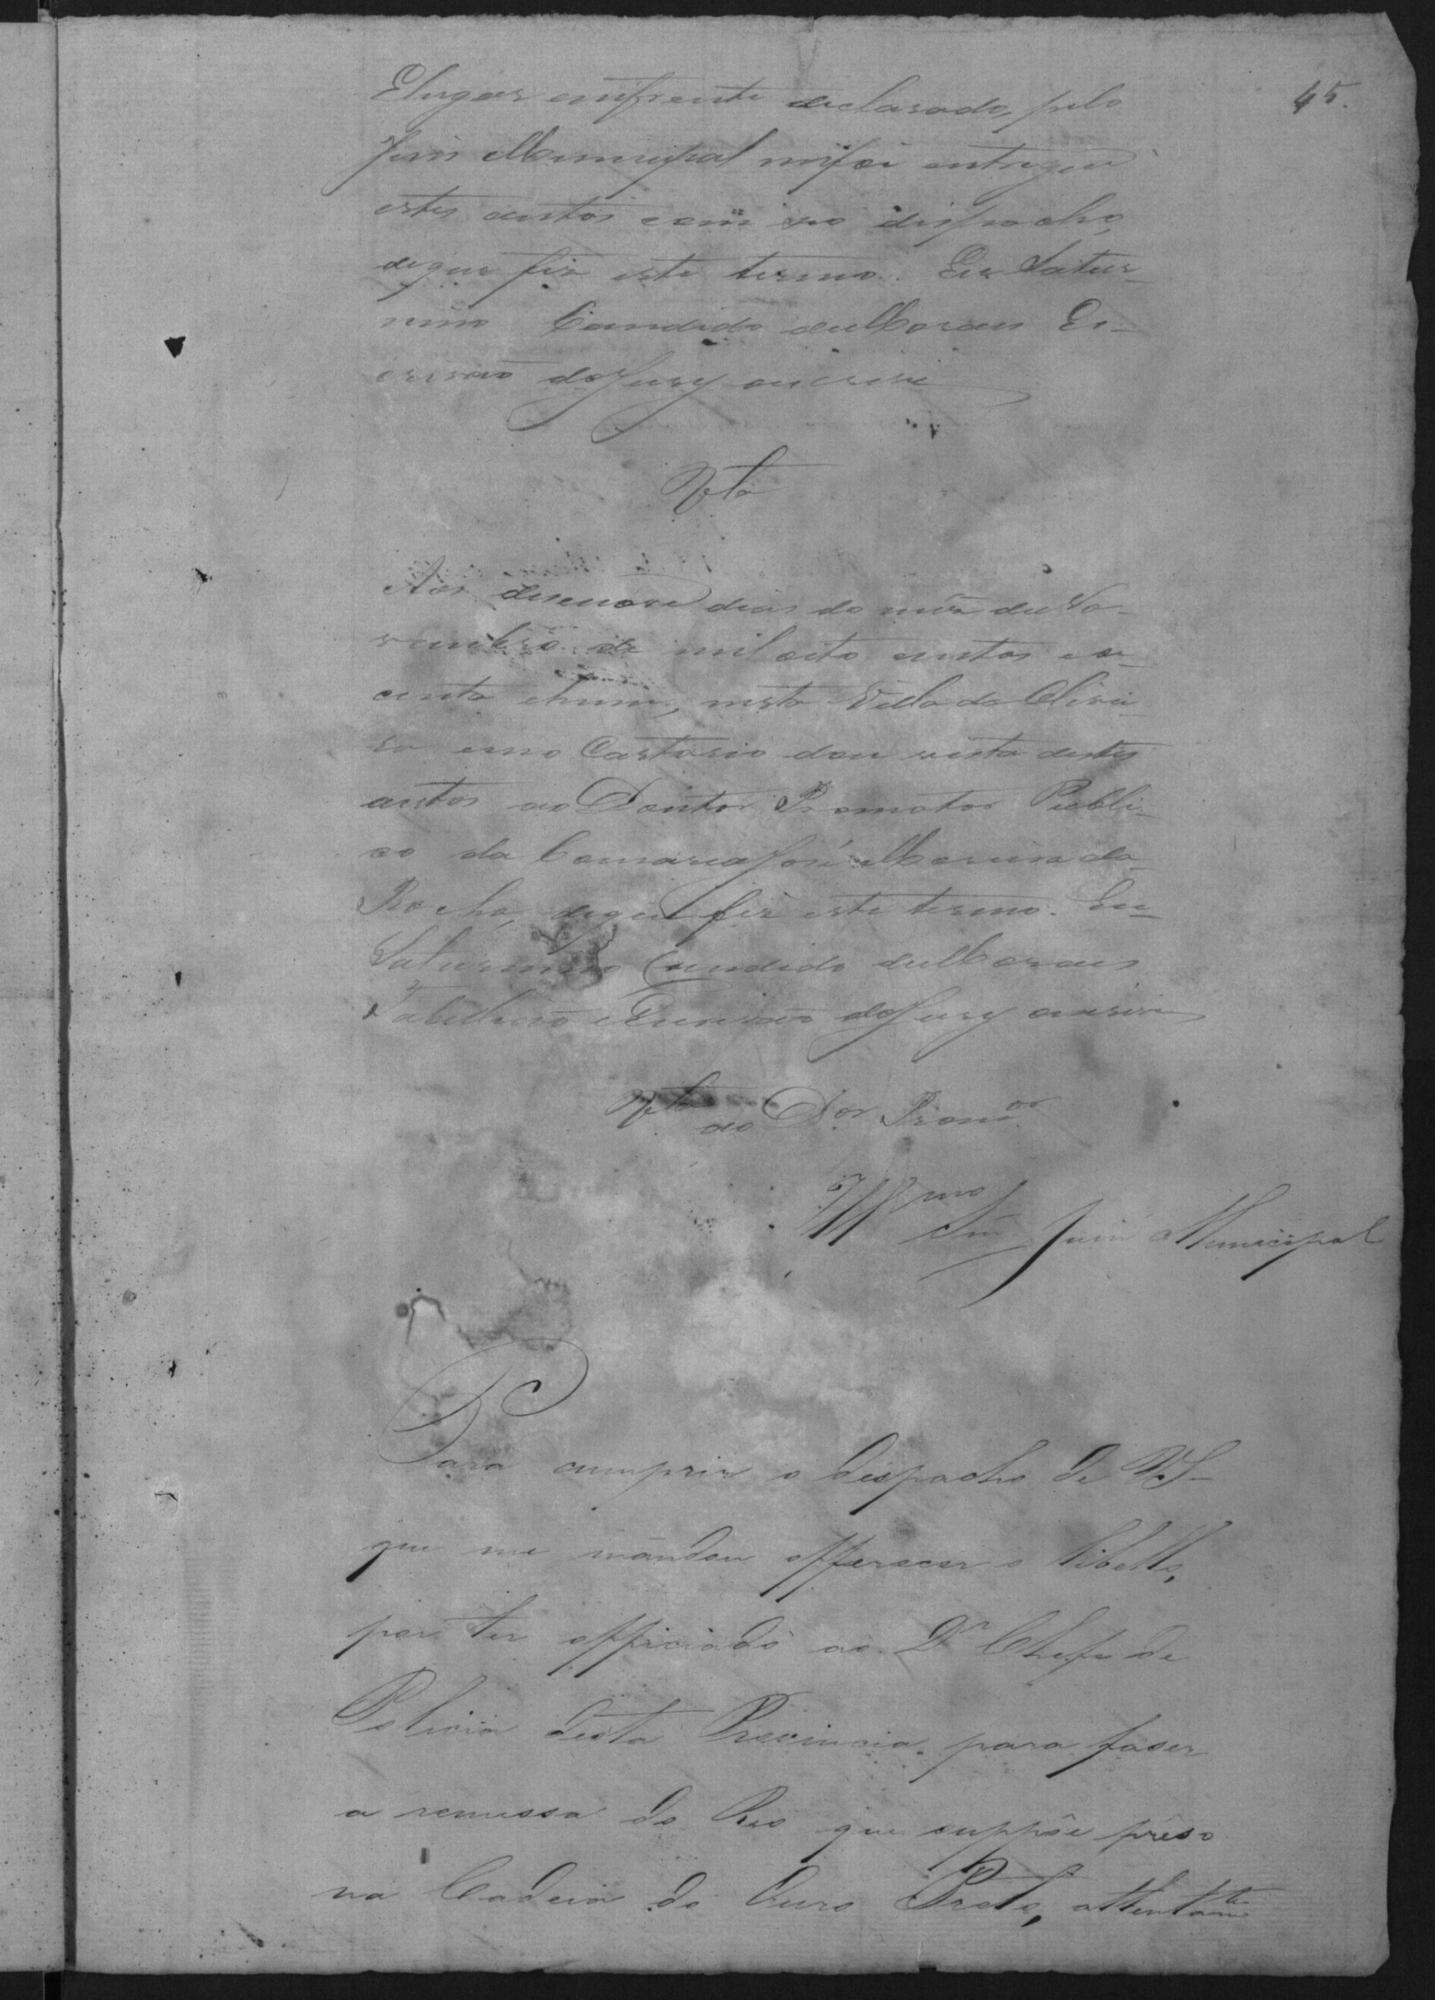 45.
Elugar emfrente declarado, pelo
Juis Municipal mifoi entregue
estes autos com seo despacho,
deque fiz este termo. Eu Satur-
nino Candido deMoraes Es-
crivão doJury escrivi
Vta
Aos desenove dias do mez deNo-
vembro de mil oito centos e se-
centa ehum, nesta Villa da Olivei-
ra emo Cartorio dou vista destes
autos ao Doutor Promotor Publi-
co da Comarca José Moreira da
Rocha, deque fiz este termo. Eu
Saturnino Candido deMoraes
Tabelliaõ eEscrivão doJury escrivi
Vta ao Dor Promor
Illmo Snr Juiz Municipal
Para cumprir o despacho de VS
que me mandou offerecer o libello,
por ter officiado ao Dr Chefe de
Policia desta Provincia para faser
a remessa do Reo que suppõe prêso
na Cadeia do Ouro Preto, attentamte